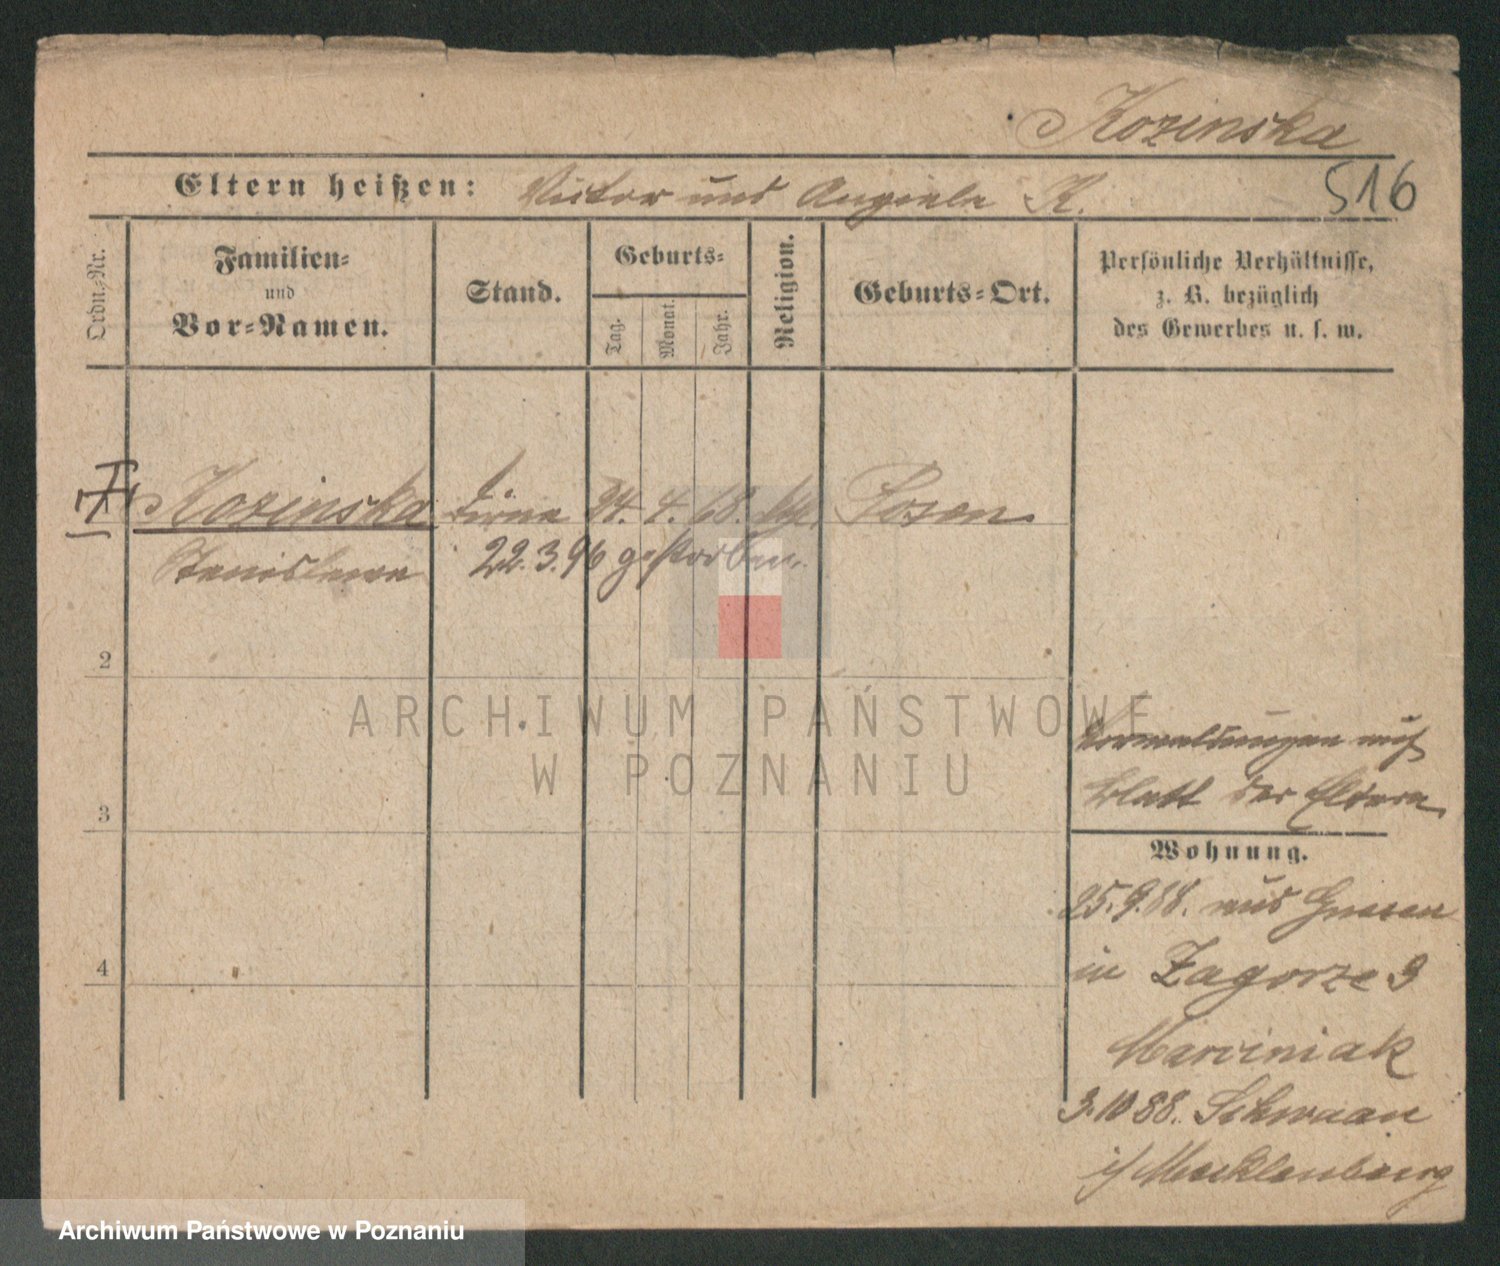 Kozinska
516
Eltern heißen: Victor und Angiela K.
Ordn.-Nr.
Familien-
und
Vor-Namen.
Stand.
Geburts-
Tag.
Monat.
Jahr.
Religion.
Geburts-Ort.
Persönliche Verhältnisse,
z. B. bezüglich
des Gewerbes u. s. w.
Kozinska Dirne 24. 4. 68. kth. Posen
Stanislawa 22.3.96 gestorben.
2
3
4
ARCHIWUM PAŃSTWOWE
W POZNANIU
Vormeldungen auf
Blatt der Eltern
Wohnung.
25.9.88. aus Gnesen
in Zagorze 9
Marciniak
3.10 88. Schwaan
i/Mecklenburg
Archiwum Państwowe w Poznaniu